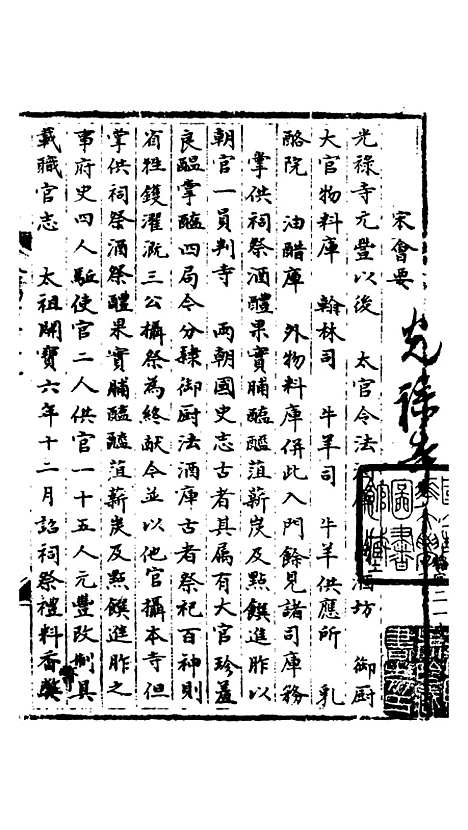 宋會要
光祿寺
光祿寺元豐以後 太官令法 酒坊 御厨
大官物料庫 翰林司 牛羊司 牛羊供應所 乳
酪院 油醋庫 外物料庫併此入門餘見諸司庫務
掌供祠祭酒醴果實脯醢醯菹薪炭及點饌進胙以
朝官一員判寺 兩朝國史志古者其属有大官珍羞
良醖掌醢四局令分隸御厨法酒庫古者祭祀百神則
省牲鑊濯溉三公攝祭為終献令並以他官攝本寺但
掌供祠祭酒祭醴果實脯醢醯菹薪炭及點饌進胙之
事府史四人驅使官二人供官一十五人元豐改制具
載職官志 太祖開寶六年十二月詔祠祭禮料香幣